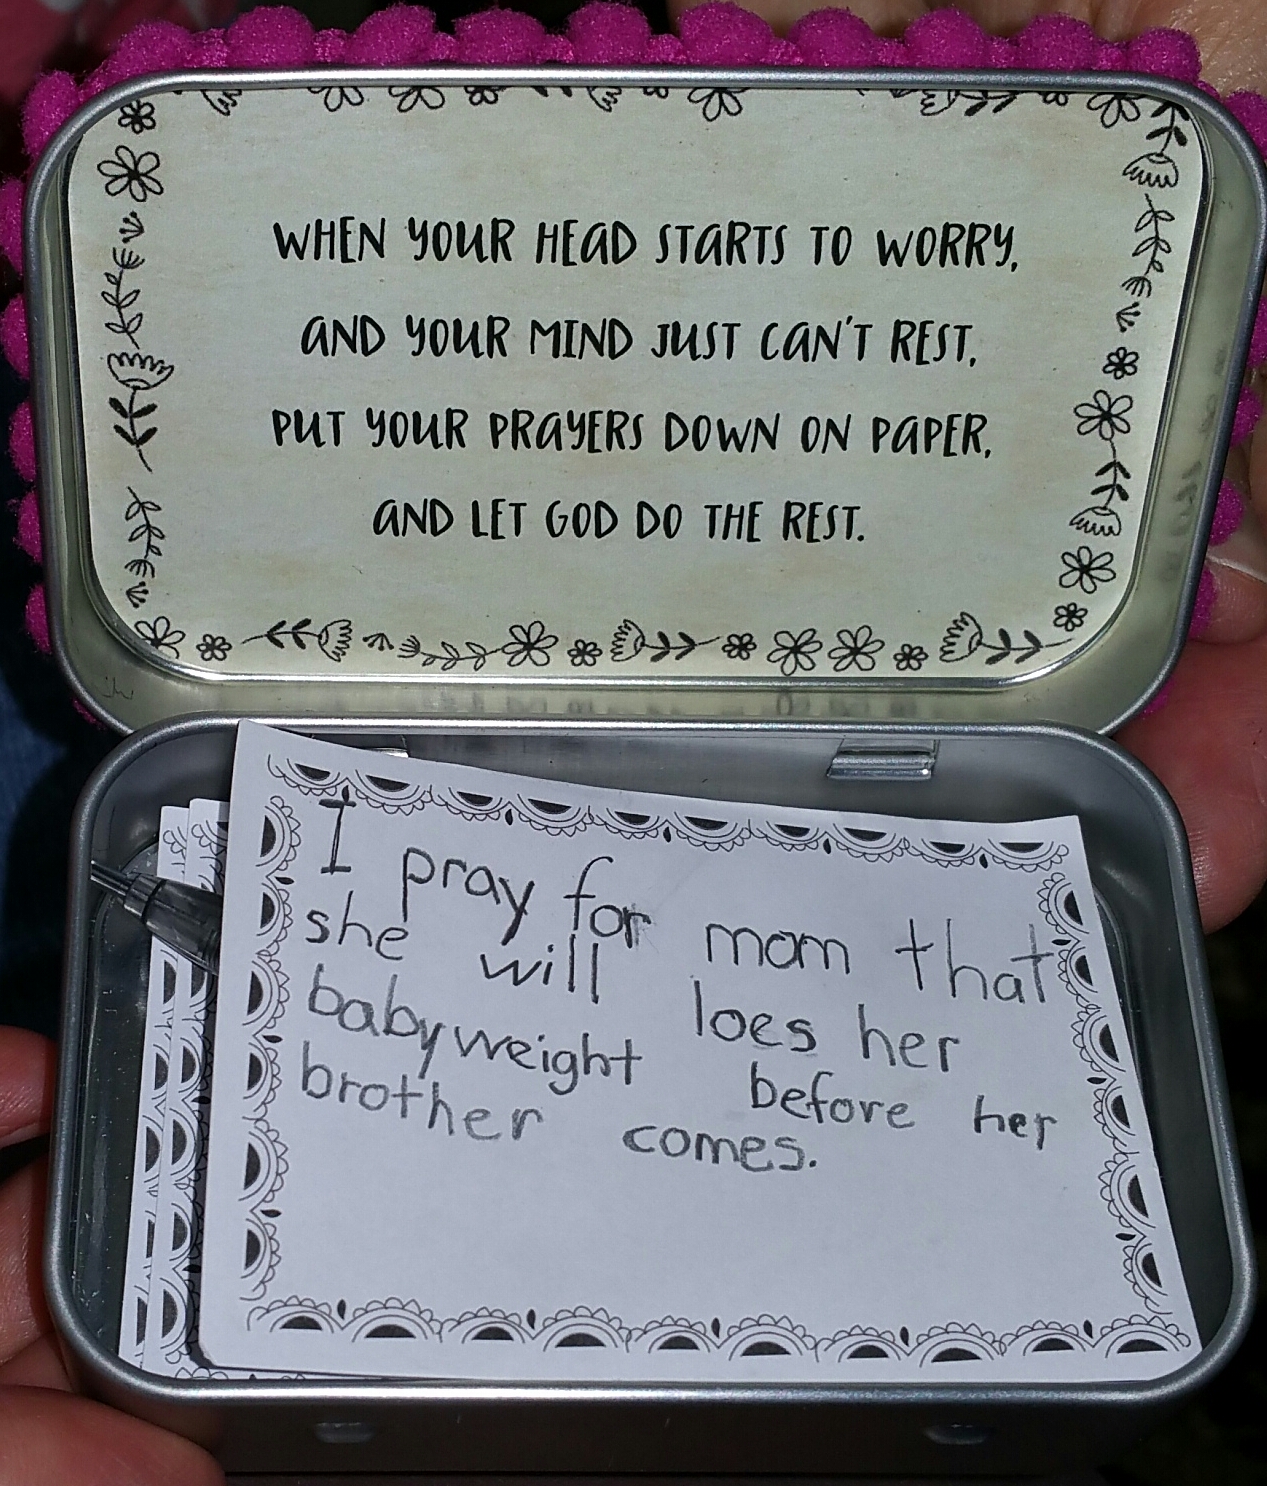 WHEN YOUR HEAD STARTS TO WORRY,
AND YOUR MIND JUST CAN'T REST,
PUT YOUR PRAYERS DOWN ON PAPER,
AND LET GOD DO THE REST.
I pray for mom that
she will loes her
babyweight before her
brother comes.